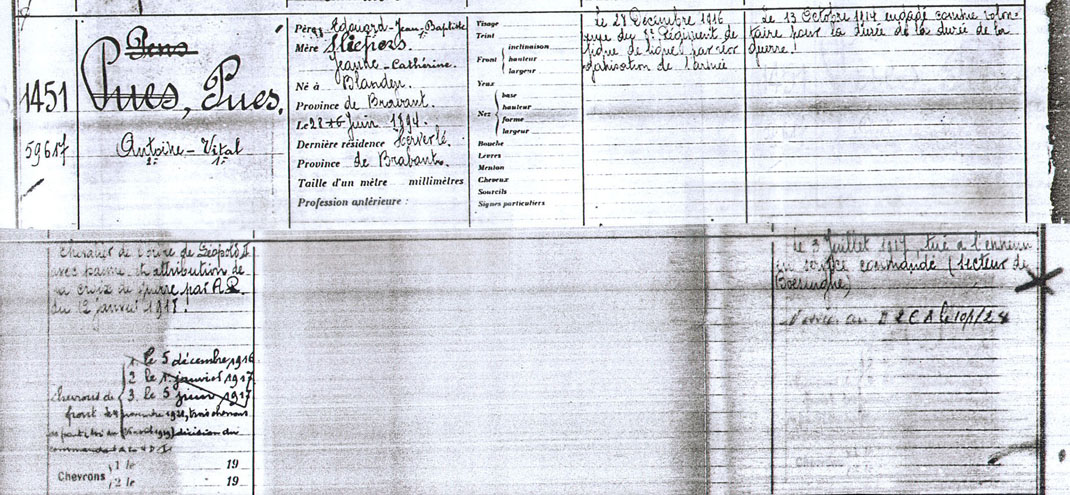 1451
59617
Pens
Pues, Pues.
Antoine - Vital
Père Edouard-Jean-Baptiste
Mère
Jeanne-Catherine.
Né à Blanden
Province de Brabant.
Le 28 Juin 1894.
Dernière résidence Herverlé
Province de Brabant.
Taille d'un mètre millimètres
Profession antérieure :
Visage
Teint
Front
inclinaison
hauteur
largeur
Yeux
Nez
base
hauteur
forme
largeur
Bouche
Levres
Menton
Cheveux
Sourcils
Signes particuliers
Le 28 Décembre 1916
du Régiment de
ligne de ligne par
organisation de l'armée
Le 13 Octobre 1914 engagé comme volon-
taire pour la durée de la durée de la
guerre!
Chevalier de l'ordre de Léopold II
avec palme et attribution de
la croix de guerre par A.R.
du 12 janvier 1918.
Chevrons de
front
1 le 5 décembre 1916
2 le 1 janvier 1917
3. le 5 juin 1917
décision du
Chevrons
1 le 19
2 le 19
Le 3 Juillet 1917, tué à l'ennemi
en service commandé (secteur de
Boesinghe)
au le 10/1/24